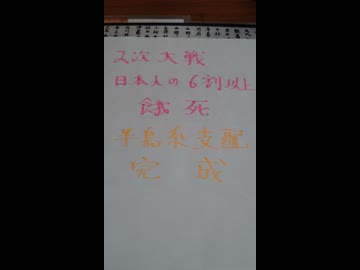 2次大戦
日本人の6割以上
餓死
半島系支配
完成